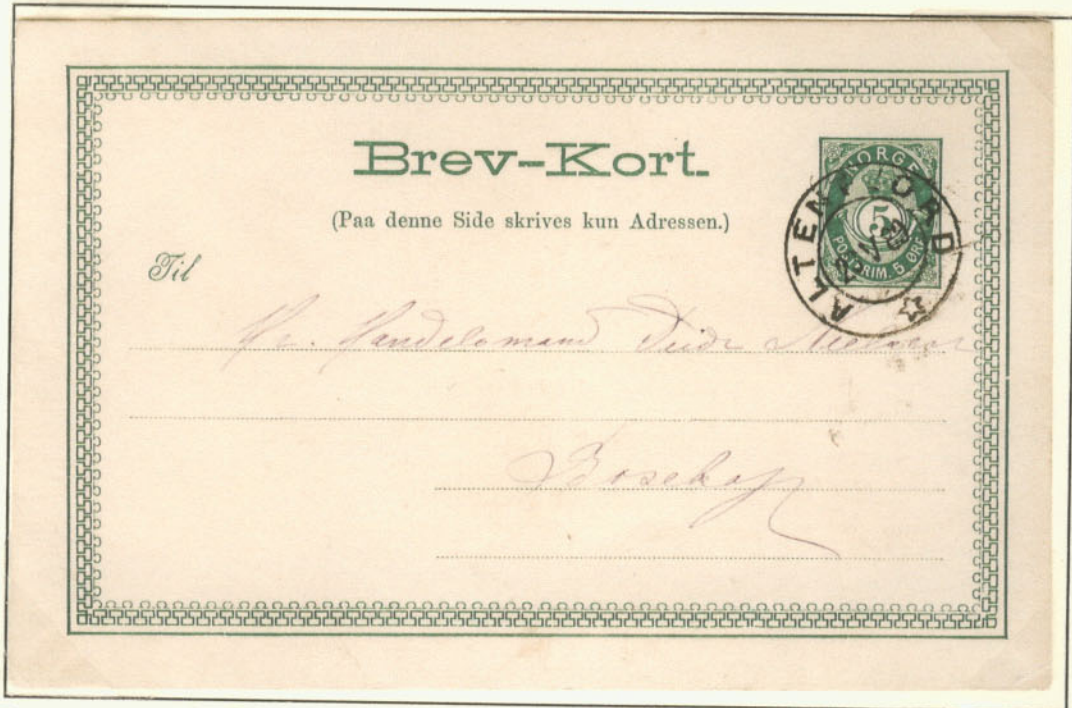 Brev-Kort.
(Paa denne Side skrives kun Adressen.)
NORGE
5
POSTFRIM. 5 ØRE
ALTENFJORD
Til
Hr. Handelsmand
Bosekop